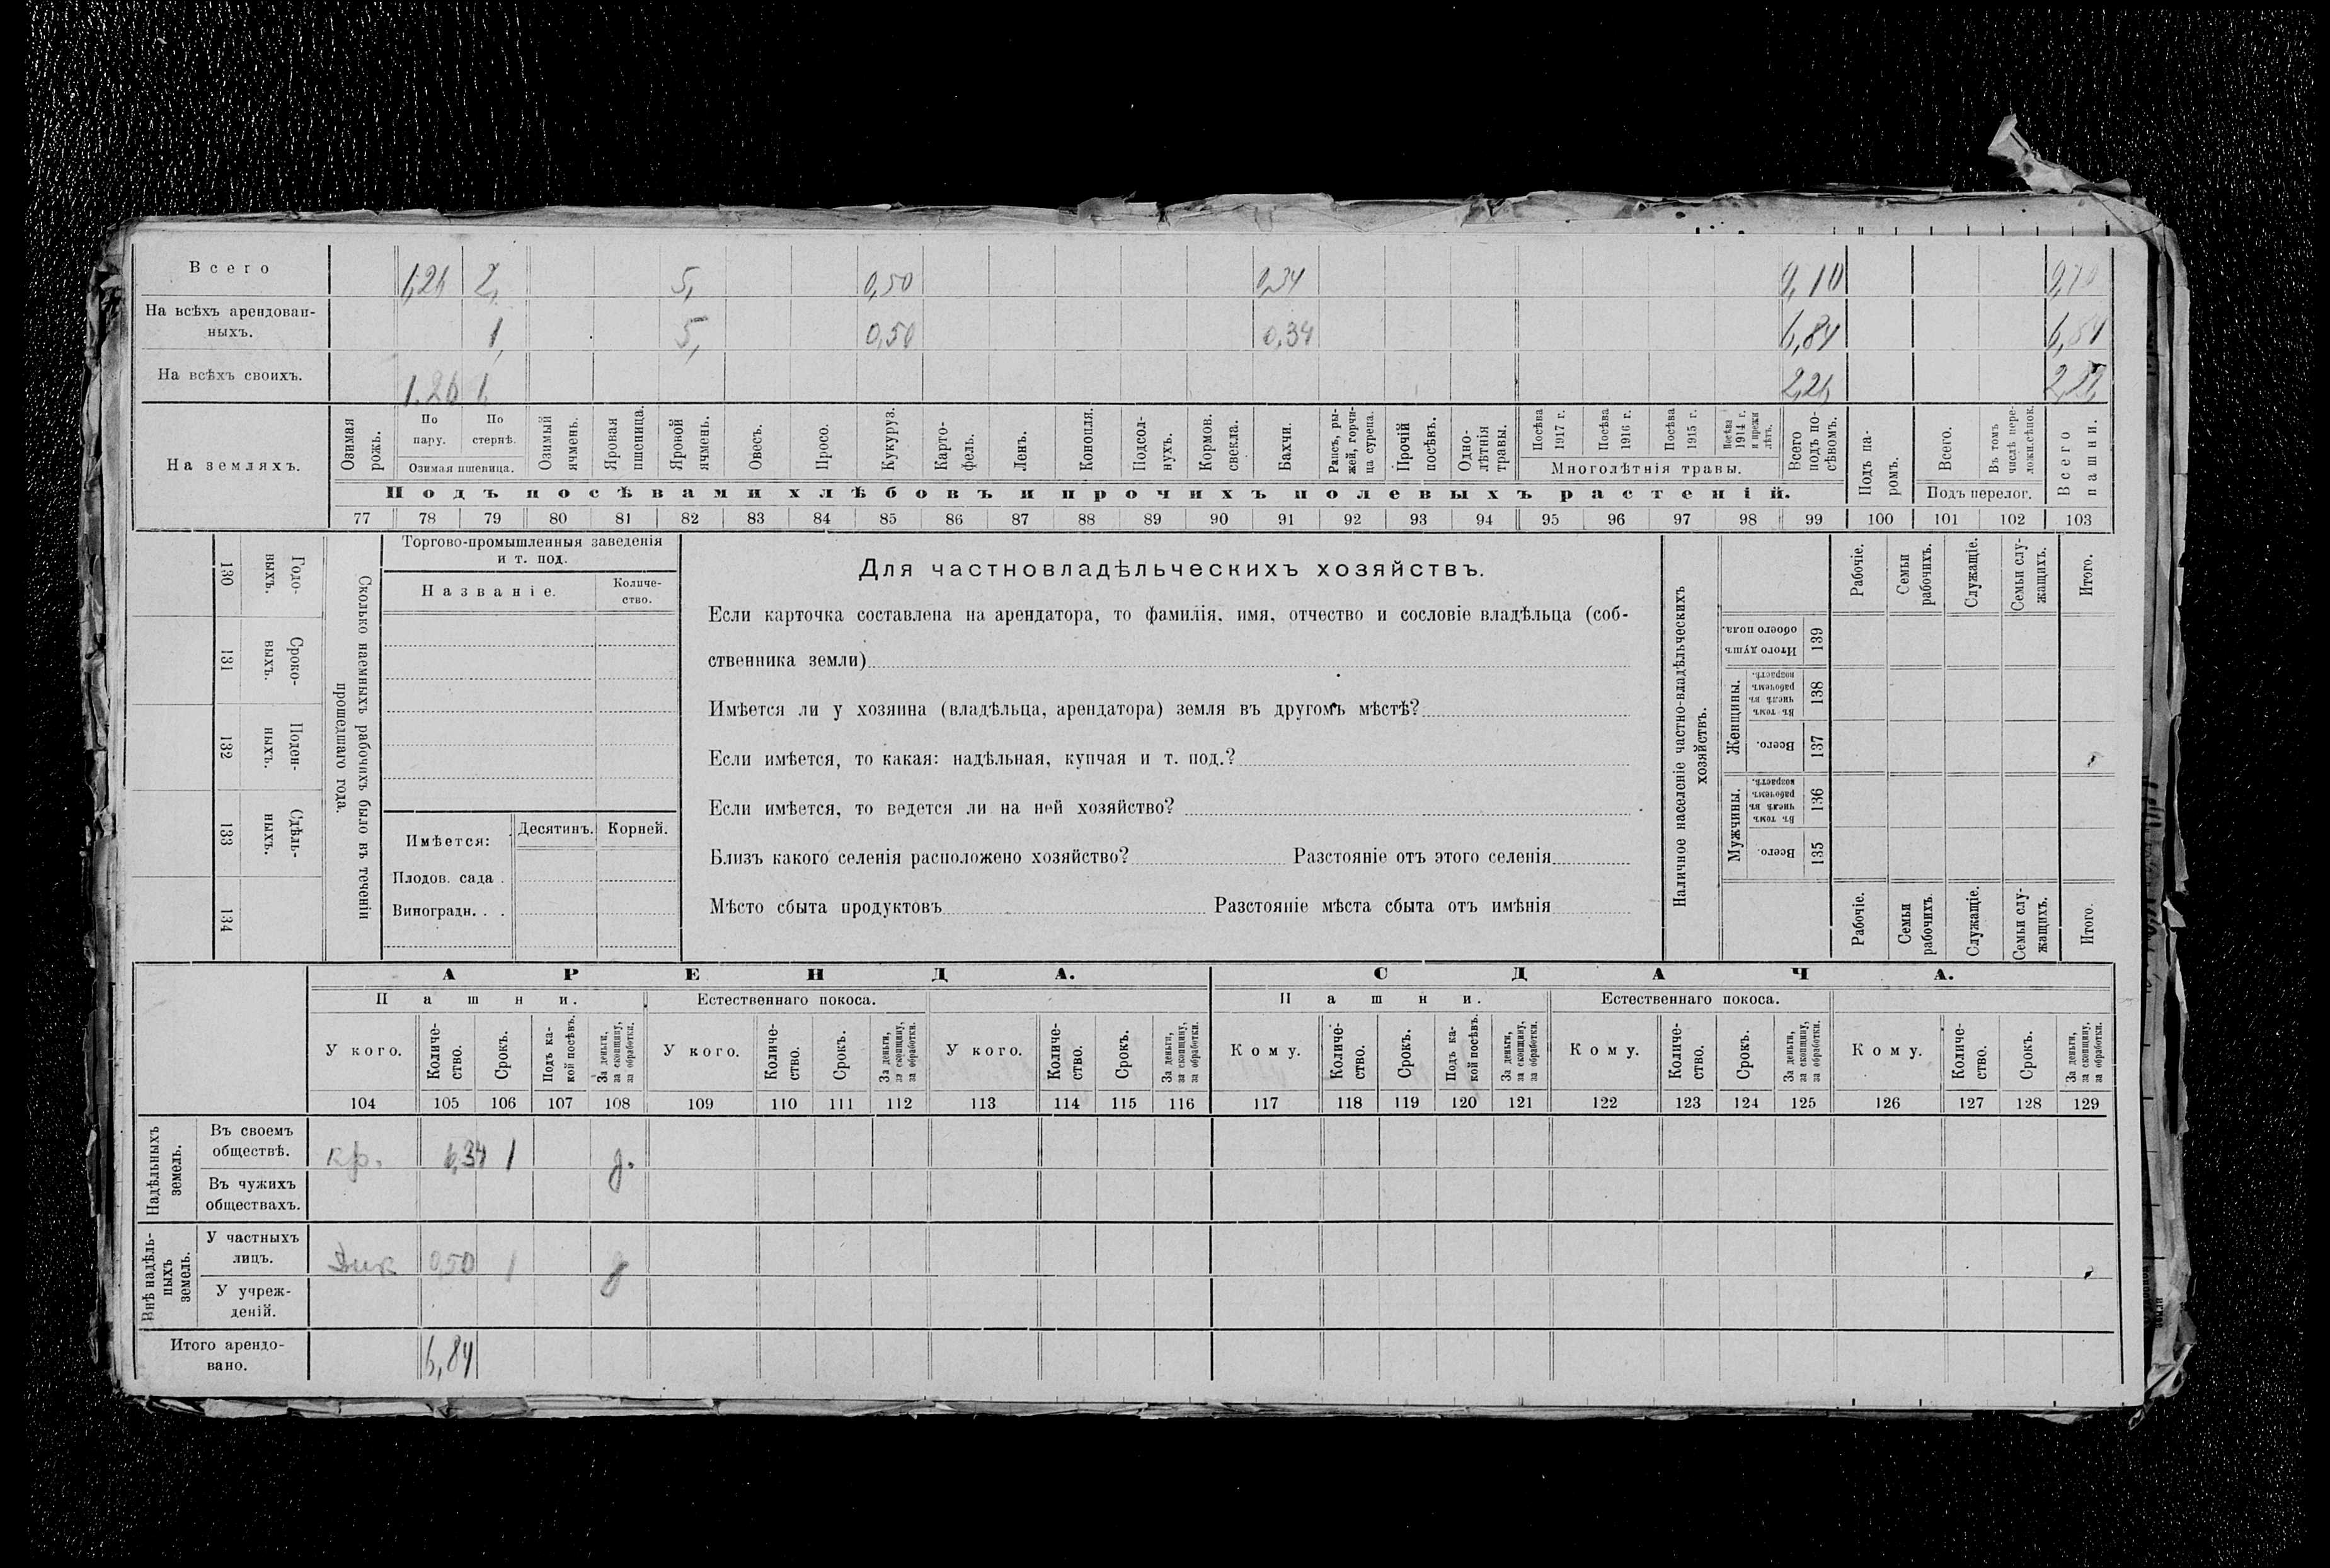 Всего 1,26 2, 5, 0,50 0,34 9,10 9,10
На всѣхъ арендован-
ныхъ. 1, 5, 0,50 0,34 6,84 6,84
На всѣхъ своихъ. 1,26 1, 2,26
На земляхъ.
Озимая рожь.
По пару.
По стернѣ.
Озимая пшеница.
Озимый ячмень.
Яровая пшеница.
Яровой ячмень.
Овесъ.
Просо.
Кукуруз.
Карто-
фель.
Ленъ.
Конопля.
Подсол-
нухъ.
Кормов.
свекла.
Бахчи.
Рапсъ, ры-
жей, горчи-
ца сурепа.
Прочій
посѣвъ.
Одно-
лѣтнія
травы.
Посѣва
1917 г.
Посѣва
1916 г.
Посѣва
1915 г.
Посѣва
1914 г.
и прежн
лѣтъ.
Многолѣтнія травы.
Всего
подъ по-
сѣвомъ.
Подъ па-
ромъ.
Всего.
Въ томъ
числѣ пере-
ложн.сѣнок.
Подъ перелог.
Всего
пашни.
Подъ посѣвами хлѣбовъ и прочихъ полевыхъ растеній.
77 78 79 80 81 82 83 84 85 86 87 88 89 90 91 92 93 94 95 96 97 98 99 100 101 102 103
Годо-
выхъ.
130
Сроко-
выхъ.
131
Поден-
ныхъ.
132
Сдѣль-
ныхъ.
133
134
Сколько наемныхъ рабочихъ было въ теченіи
прошедшаго года.
Торгово-промышленныя заведенія
и т. под.
Названіе.
Количе-
ство.
Имѣется:
Десятинъ. Корней.
Плодов. сада .
Виноградн. . .
Для частновладѣльческихъ хозяйствъ.
Если карточка составлена на арендатора, то фамилія, имя, отчество и сословіе владѣльца (соб-
ственника земли)
Имѣется ли у хозяина (владѣльца, арендатора) земля въ другомъ мѣстѣ?
Если имѣется, то какая: надѣльная, купчая и т. под.?
Если имѣется, то ведется ли на ней хозяйство?
Близъ какого селенія расположено хозяйство? Разстояніе отъ этого селенія
Мѣсто сбыта продуктовъ Разстояніе мѣста сбыта отъ имѣнія
Наличное населеніе частно-владѣльческихъ
хозяйствъ.
Рабочіе.
Семьи
рабочихъ.
Служащіе.
Семьи слу-
жащихъ.
Итого.
Итого душъ
обоего пола.
139
Женщины.
Въ томъ
числѣ въ
рабочемъ
возрастѣ.
138
Всего.
137
Мужчины.
Въ томъ
числѣ въ
рабочемъ
возрастѣ.
136
Всего.
135
Рабочіе.
Семьи
рабочихъ.
Служащіе.
Семьи слу-
жащихъ.
Итого.
АРЕНДА. СДАЧА.
Пашни. Естественнаго покоса. Пашни. Естественнаго покоса.
У кого.
Количе-
ство.
Срокъ.
Подъ ка-
кой посѣвъ.
За деньги,
за скопщину,
за обработки.
У кого.
Количе-
ство.
Срокъ.
За деньги,
за скопщину,
за обработки.
У кого.
Количе-
ство.
Срокъ.
За деньги,
за скопщину,
за обработки.
Кому.
Количе-
ство.
Срокъ.
Подъ ка-
кой посѣвъ.
За деньги,
за скопщину,
за обработки.
Кому.
Количе-
ство.
Срокъ.
За деньги,
за скопщину,
за обработки.
Кому.
Количе-
ство.
Срокъ.
За деньги,
за скопщину,
за обработки.
104 105 106 107 108 109 110 111 112 113 114 115 116 117 118 119 120 121 122 123 124 125 126 127 128 129
Надѣльныхъ
земель.
Въ своемъ
обществѣ. кр. 6,34 1 д.
Въ чужихъ
обществахъ.
Внѣ надѣль-
ныхъ
земель.
У частныхъ
лицъ. 0,50 1 д
У учреж-
деній.
Итого арендо-
вано. 6,84